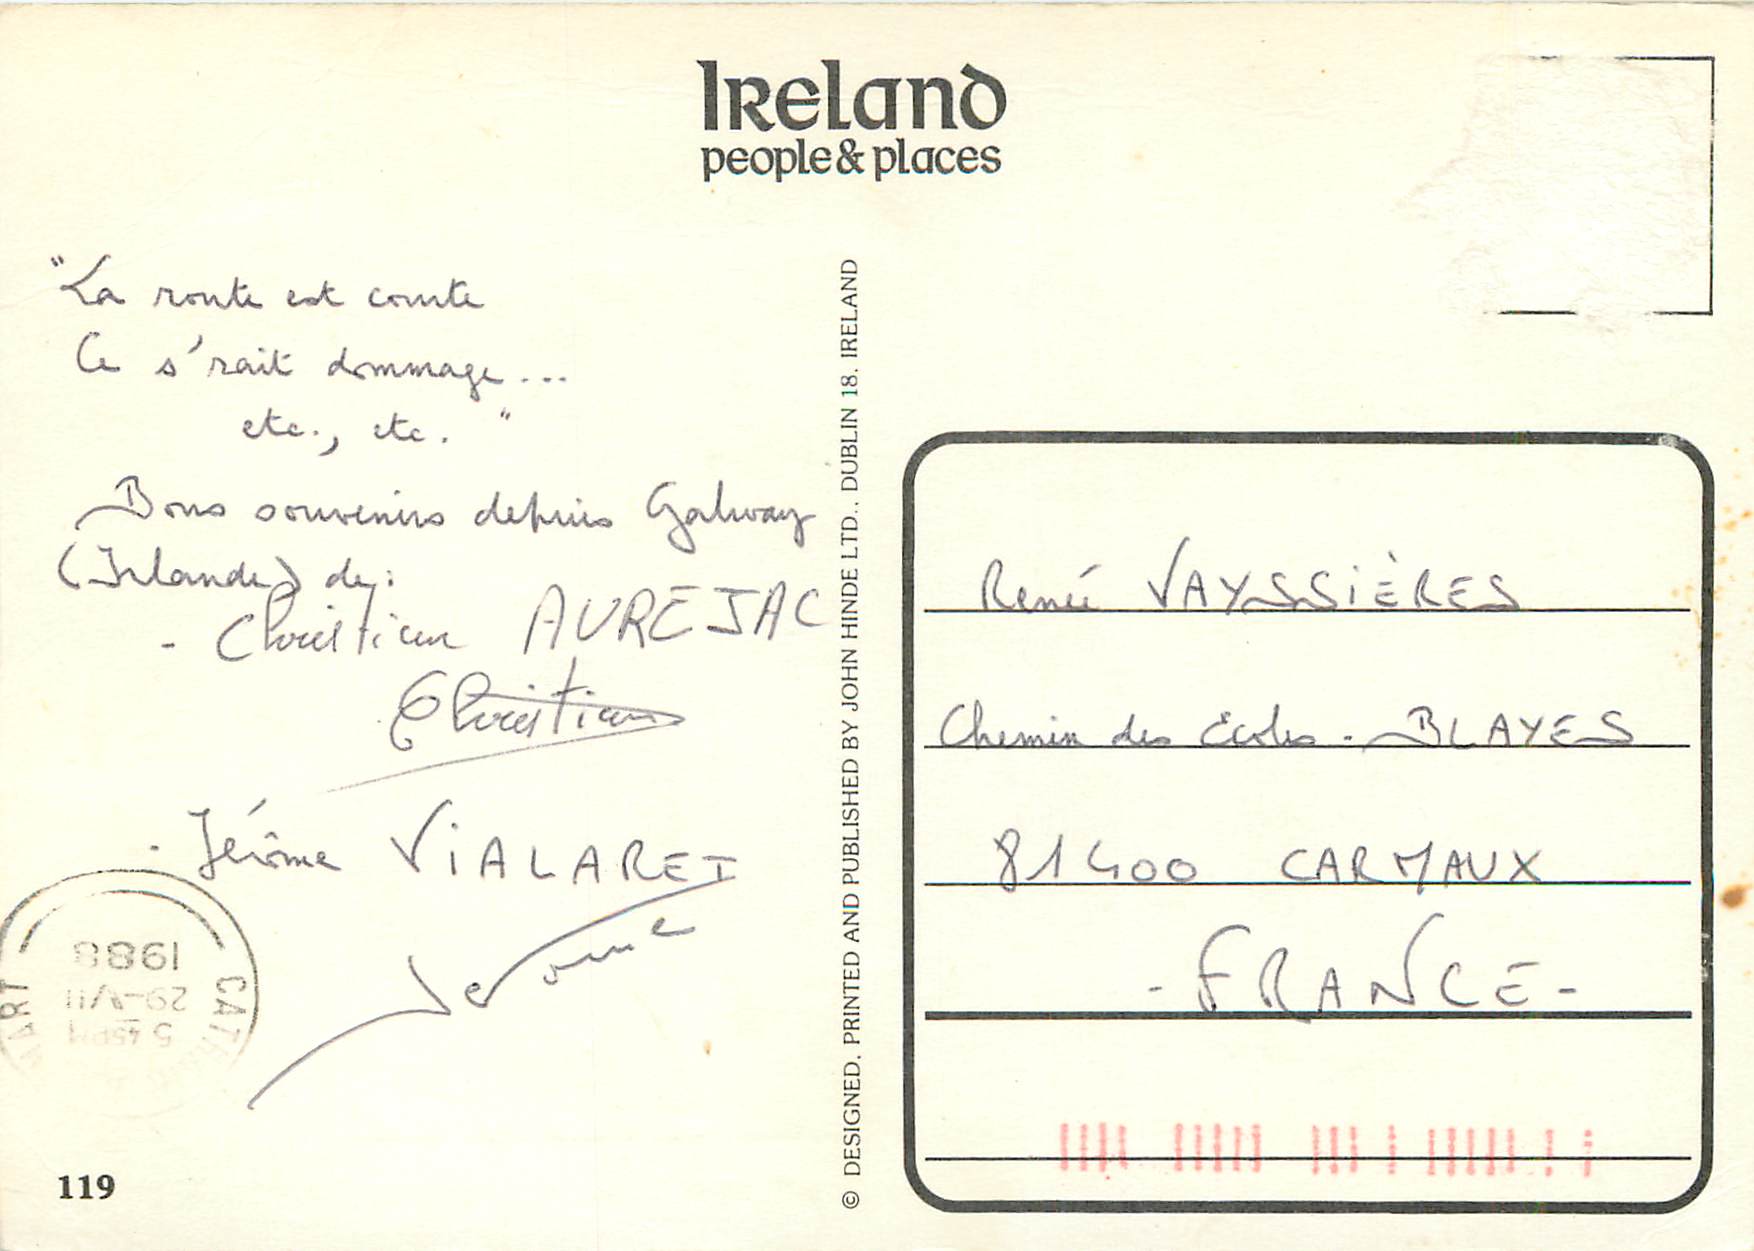 Ireland
people & places
"La route est courte
Ce s'rait dommage...
etc., etc."
Bons souvenirs depuis Galway
(Irlande) de:
- Christian AUREJAC
Christian
- Jérôme VIALARET
Jerome
1988
29-VII
5 45PM
119
© DESIGNED, PRINTED AND PUBLISHED BY JOHN HINDE LTD., DUBLIN 18. IRELAND
Renée VAYSSIÈRES
Chemin des Ecoles - BLAYES
81400 CARMAUX
- FRANCE -